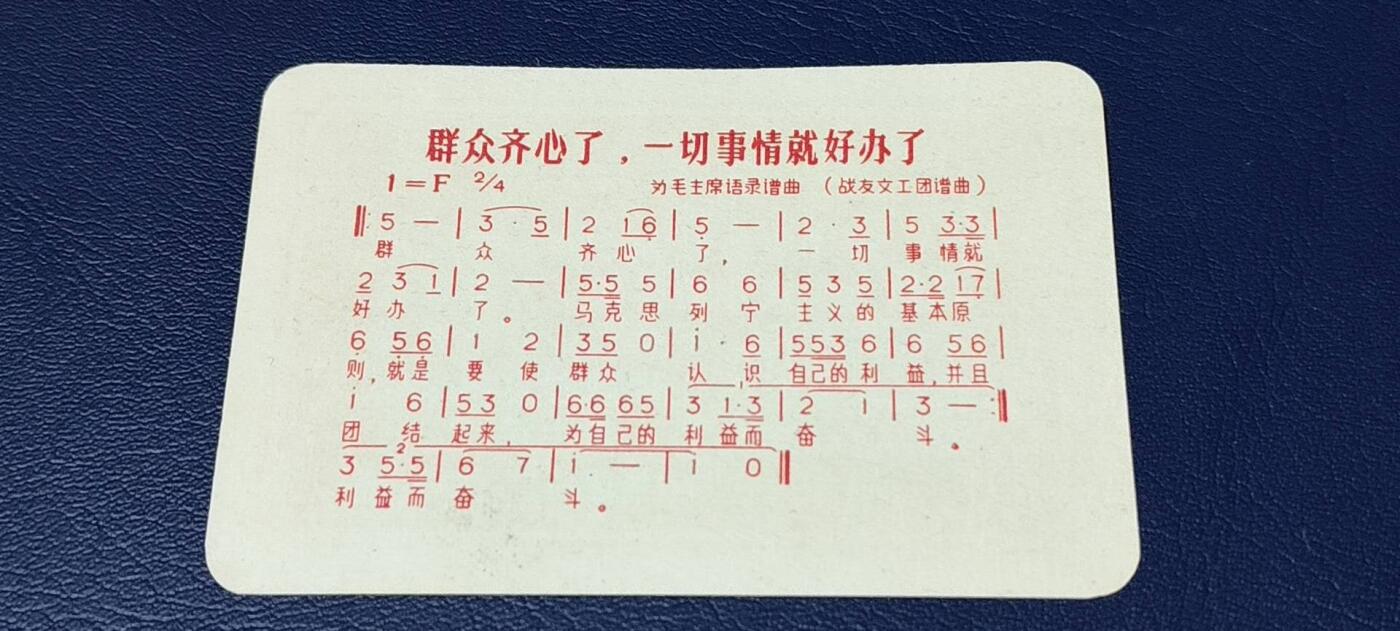 群众齐心了，一切事情就好办了
1=F 2/4 为毛主席语录谱曲 （战友文工团谱曲）
‖: 5 — | 3 · 5 | 2 1 6 | 5 — | 2 · 3 | 5 3·3 |
群 众 齐 心 了， 一 切 事 情就
2 3 1 | 2 — | 5·5 5 | 6 6 | 5 3 5 | 2·2 1 7 |
好 办 了。 马 克 思 列 宁 主 义 的 基 本 原
6 5 6 | 1 2 | 3 5 0 | i · 6 | 5 5 3 6 | 6 5 6 |
则，就是 要 使 群 众 认 识 自己的 利 益，并且
i 6 | 5 3 0 | 6·6 6 5 | 3 1·3 | 2 1 | 3 — :‖
团 结 起来， 为自己的 利 益而 奋 斗。
2
3 5·5 | 6 7 | i — | i 0 ‖
利 益 而 奋 斗。